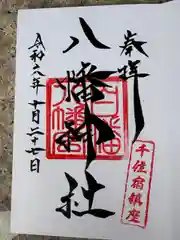 奉拝
八幡神社
八幡宮
令和六年十月二十七日
千住宿鎮座